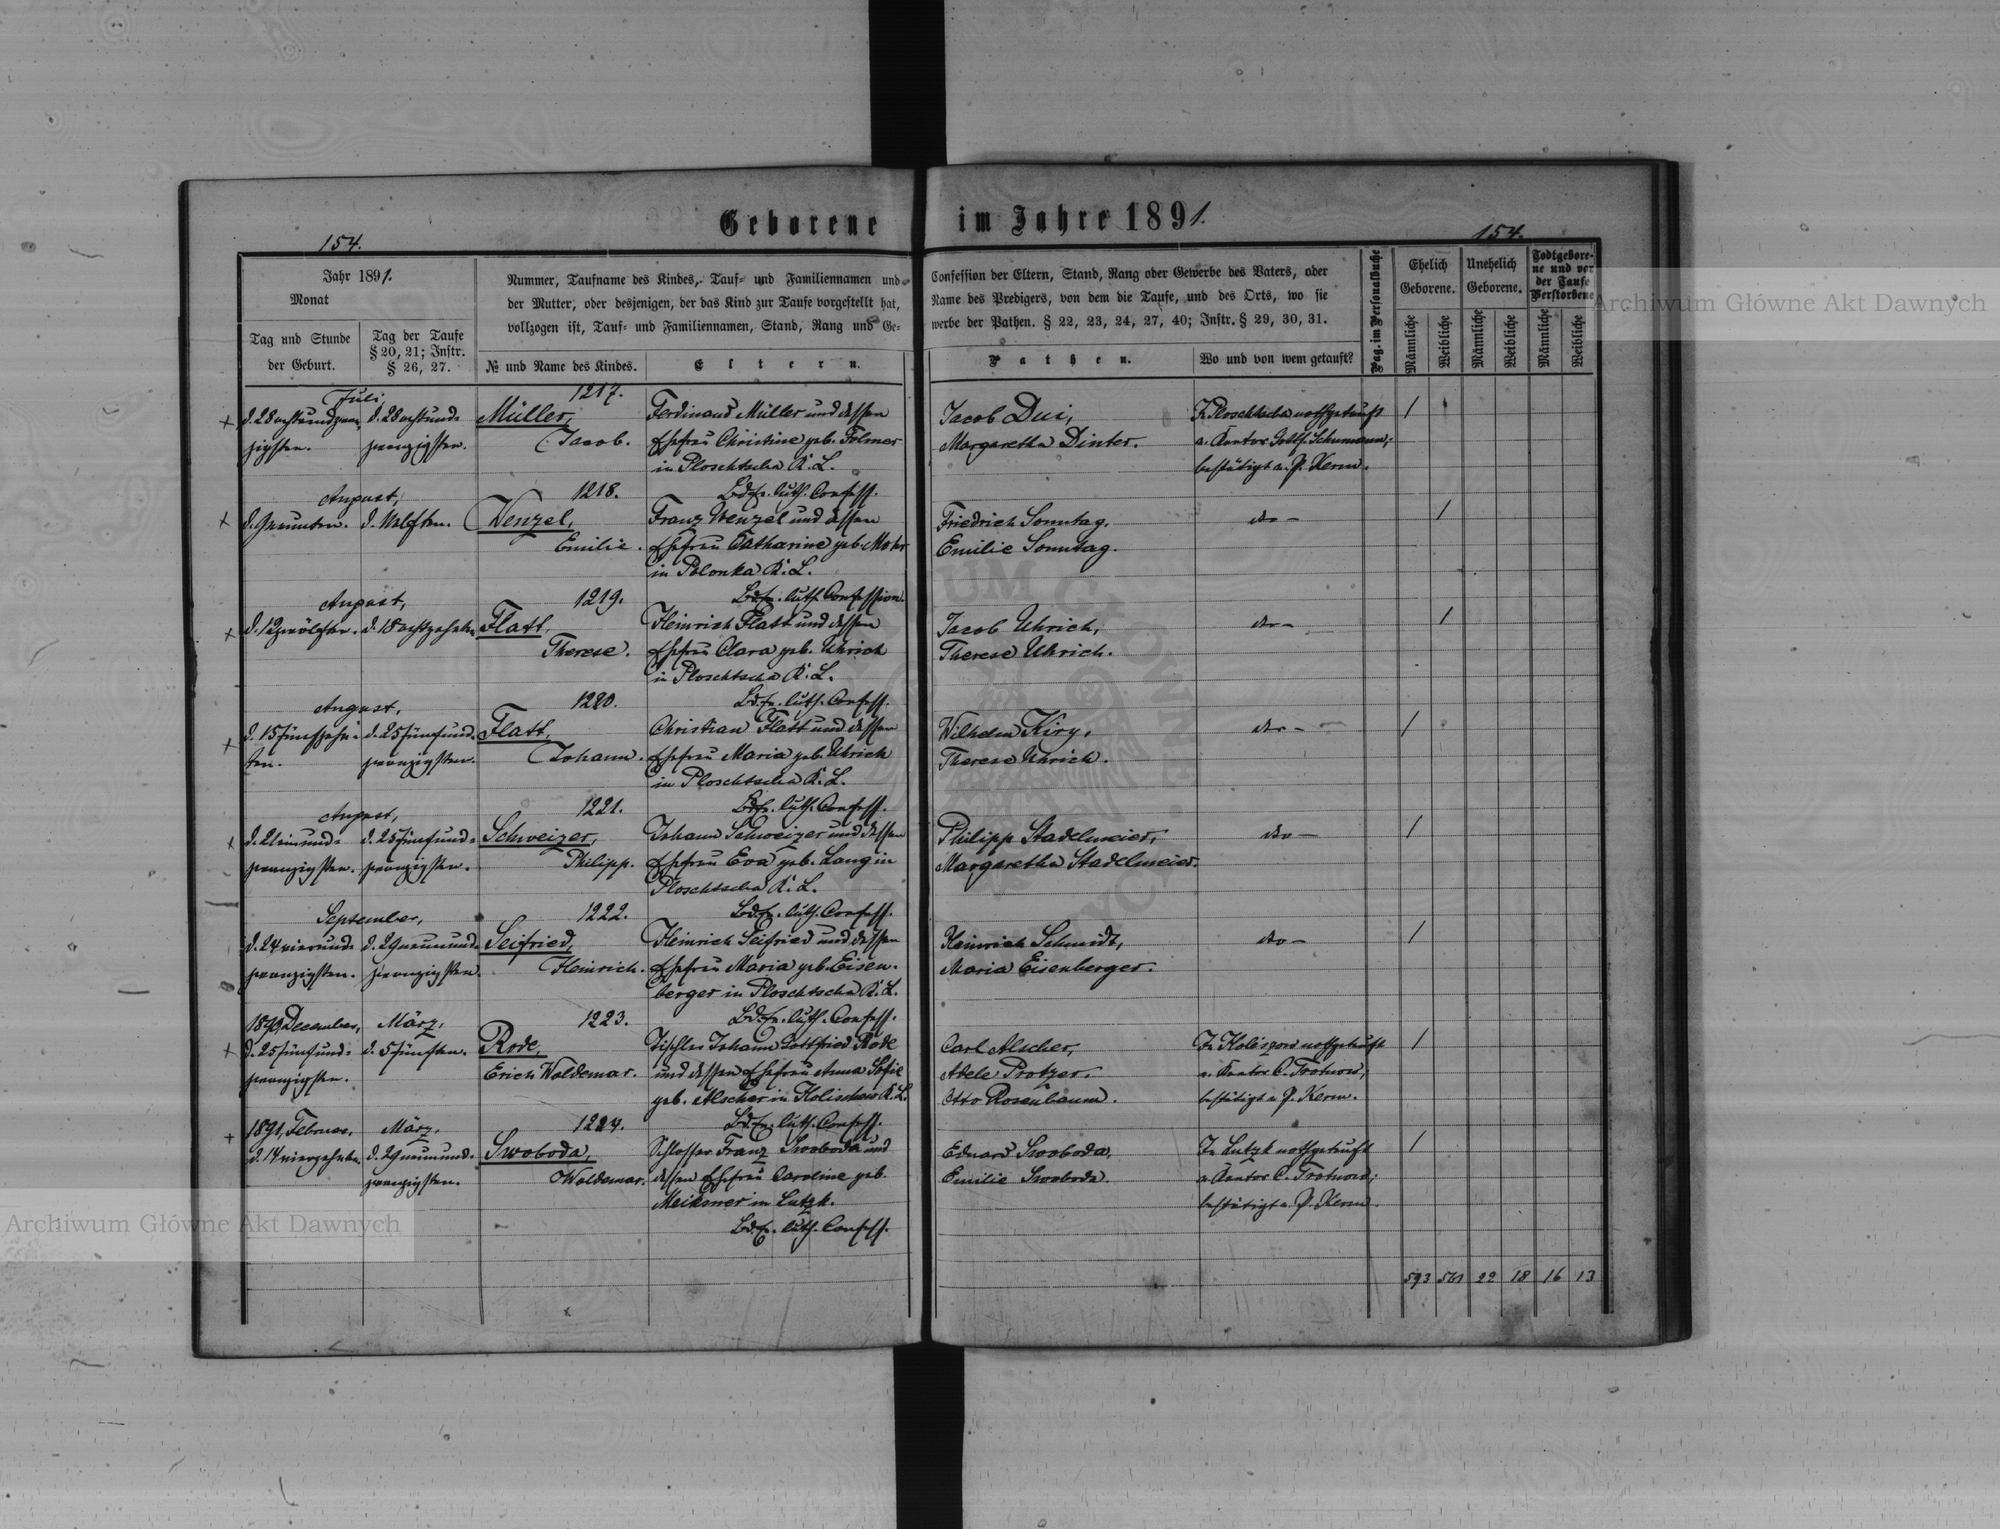 Geborene im Jahre 1891.
154.
154.
Jahr 1891.
Monat
Tag und Stunde
der Geburt.
Tag der Taufe
§ 20, 21; Instr.
§ 26, 27.
Nummer, Taufname des Kindes, Tauf- und Familiennamen und
der Mutter, oder desjenigen, der das Kind zur Taufe vorgestellt hat,
vollzogen ist, Tauf- und Familiennamen, Stand, Rang und Ge-
№ und Name des Kindes.
Eltern.
Confession der Eltern, Stand, Rang oder Gewerbe des Vaters, oder
Name des Predigers, von dem die Taufe, und des Orts, wo sie
werbe der Pathen. § 22, 23, 24, 27, 40; Instr. § 29, 30, 31.
Pathen.
Wo und von wem getauft?
Pag. im Personalbuche
Ehelich
Geborene.
Unehelich
Geborene.
Todtgebore-
ne und vor
der Taufe
Verstorbene
Männliche
Weibliche
Männliche
Weibliche
Männliche
Weibliche
Juli,
1217.
+ d. 28 achtundzwan- d. 28 achtund- Müller, Ferdinand Müller und dessen Jacob Dui, In Ploschtscha nothgetauft 1
zigsten. zwanzigsten. Jacob. Ehefrau Christine geb. Folmer Margaretha Dinter. v. Kantor Gottf. Schumann;
in Ploschtscha K. L. bestätigt v. P. Kerm.
August, 1218. Bd. Ev. luth. Confess.
+ d. 9 neunten. d. 11 elften. Wenzel, Franz Wenzel und dessen Friedrich Sonntag. do - 1
Emilie. Ehefrau Catharine geb. Mohr Emilie Sonntag.
in Polonka K. L.
August, 1219. Bd. Ev. luth. Confession.
+ d. 12 zwölften. d. 18 achtzehnten Flatt, Heinrich Flatt und dessen Jacob Uhrich, do - 1
Therese. Ehefrau Clara geb. Uhrich Therese Uhrich.
in Ploschtscha K. L.
August, 1220. Bd. Ev. luth. Confess.
+ d. 15 fünfzehn- d. 25 fünfund- Flatt, Christian Flatt und dessen Wilhelm Kiry, do - 1
ten. zwanzigsten. Johann. Ehefrau Maria geb. Uhrich Therese Uhrich.
in Ploschtscha K. L.
August, 1221. Bd. Ev. luth. Confess.
+ d. 21 einund- d. 25 fünfund- Schweizer, Johann Schweizer und dessen Philipp Stadelmeier, do - 1
zwanzigsten. zwanzigsten. Philipp. Ehefrau Eva geb. Lang in Margaretha Stadelmeier.
Ploschtscha K. L.
September, 1222. Bd. Ev. luth. Confess.
d. 24 vierund- d. 29 neunund- Seifried, Heinrich Seifried und dessen Heinrich Schmidt, do - 1
zwanzigsten. zwanzigsten Heinrich. Ehefrau Maria geb. Eisen- Maria Eisenberger.
berger in Ploschtscha K. L.
December, März, 1223. Bd. Ev. luth. Confess.
+ d. 25 fünfund- d. 5 fünften. Rode, Tischler Johann Gottfried Rode Carl Alscher, In Holiszow nothgetauft 1
zwanzigsten. Erich Woldemar. und dessen Ehefrau Anna Sofie Adele Protzer. v. Kantor C. Trotnow,
geb. Alscher in Holischow K. L. Otto Rosenbaum. bestätigt v. P. Kerm.
1891, Februar, März, 1224. Bd. Ev. luth. Confess.
+ d. 14 vierzehnten d. 29 neunund- Swoboda, Schlosser Franz Swoboda und Eduard Swoboda, In Lutzk nothgetauft 1
zwanzigsten. Woldemar. dessen Ehefrau Caroline geb. Emilie Swoboda. v. Kantor C. Trotnow;
Meiksner in Lutzk. bestätigt v. P. Kerm.
Bd. Ev. luth. Confess.
593 561 22 18 16 13
Archiwum Główne Akt Dawnych
Archiwum Główne Akt Dawnych